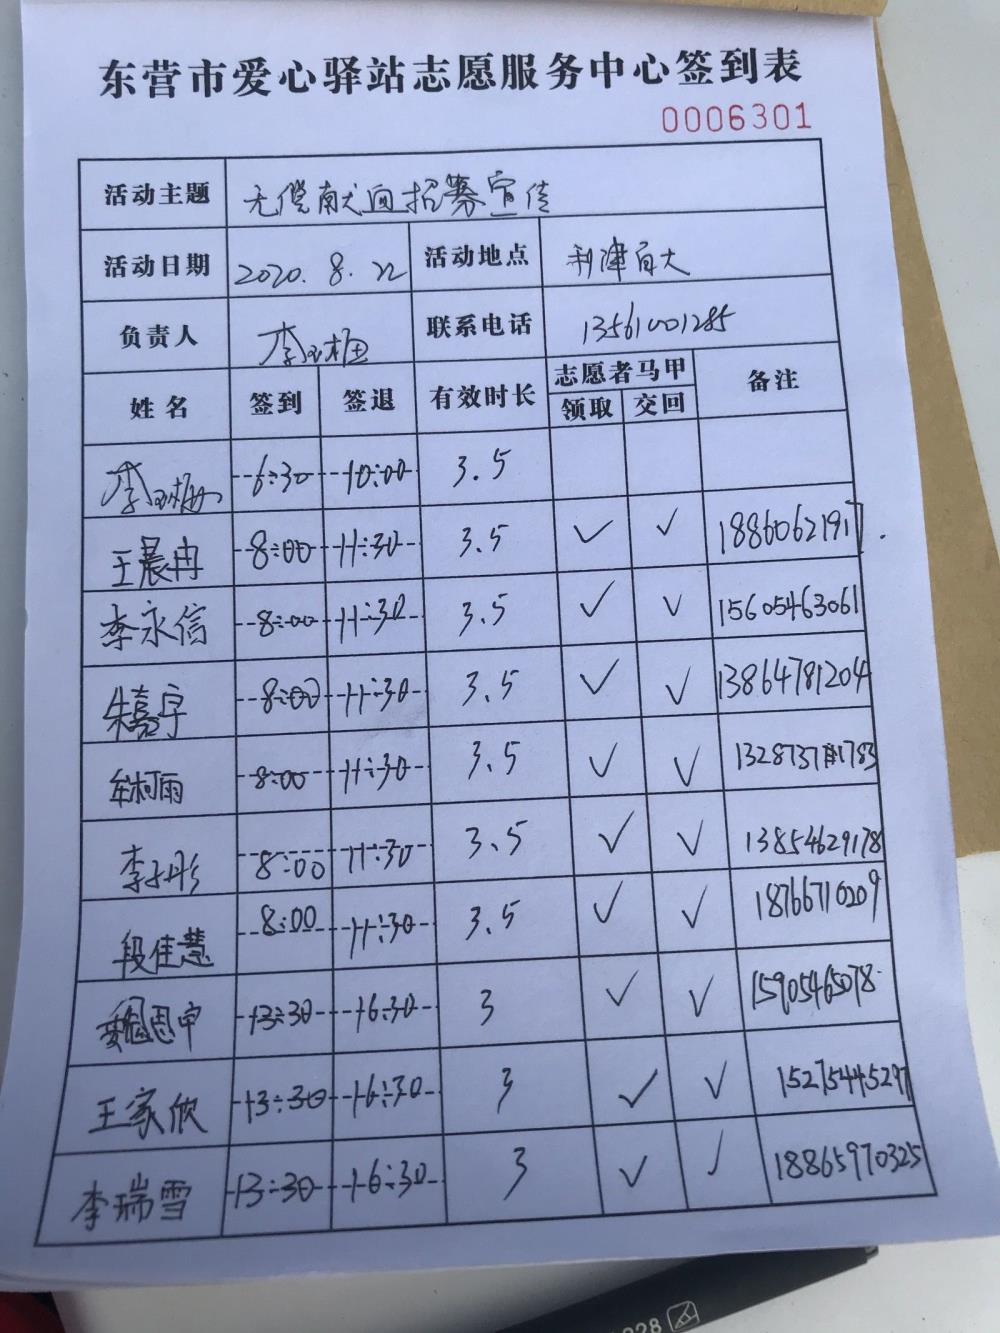 东营市爱心驿站志愿服务中心签到表
0006301
活动主题 无偿献血招募宣传
活动日期 2020.8.22 活动地点 利津百大
负责人 李玉梅 联系电话 13561001285
姓名 签到 签退 有效时长 志愿者马甲 领取 交回 备注
李玉梅 6:30 10:00 3.5
王晨冉 8:00 11:30 3.5 ✓ ✓ 18860621917
李永信 8:00 11:30 3.5 ✓ ✓ 15605463061
朱嘉宇 8:00 11:30 3.5 ✓ ✓ 13864781204
牟柯雨 8:00 11:30 3.5 ✓ ✓
李子彤 8:00 11:30 3.5 ✓ ✓ 13854629178
段佳慧 8:00 11:30 3.5 ✓ ✓ 18766710209
魏思申 13:30 16:30 3 ✓ ✓ 15905465078
王家欣 13:30 16:30 3 ✓ ✓ 15275445297
李瑞雪 13:30 16:30 3 ✓ ✓ 18865970325